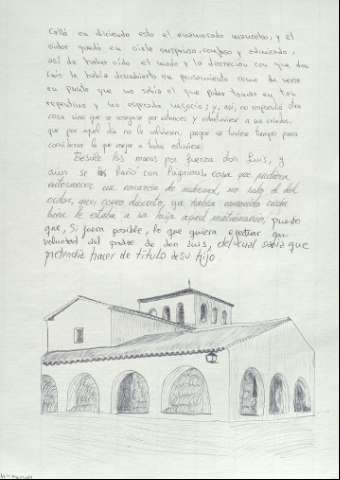 Calló en diciendo esto el enamorado mancebo, y el
oidor quedó en oírle suspenso, confuso y admirado,
así de haber oído el modo y la discreción con que don
Luis le había descubierto su pensamiento como de verse
en punto que no sabía el que poder tomar en tan
repentino y no esperado negocio; y, así, no respondió otra
cosa sino que se sosegase por entonces y entretuviese a sus criados,
que por aquel día no le volviesen, porque se tuviese tiempo para
considerar lo que mejor a todos estuviese.
Besóle las manos por fuerza don Luis, y
aun se las bañó con lágrimas, cosa que pudiera
enternecer un corazón de mármol, no solo el del
oidor, que, como discreto, ya había conocido cuán
bien le estaba a su hija aquel matrimonio, puesto
que, si fuera posible, lo que quiera efectuar con
voluntad del padre de don Luis, del cual sabía que
pretendía hacer de título de su hijo.